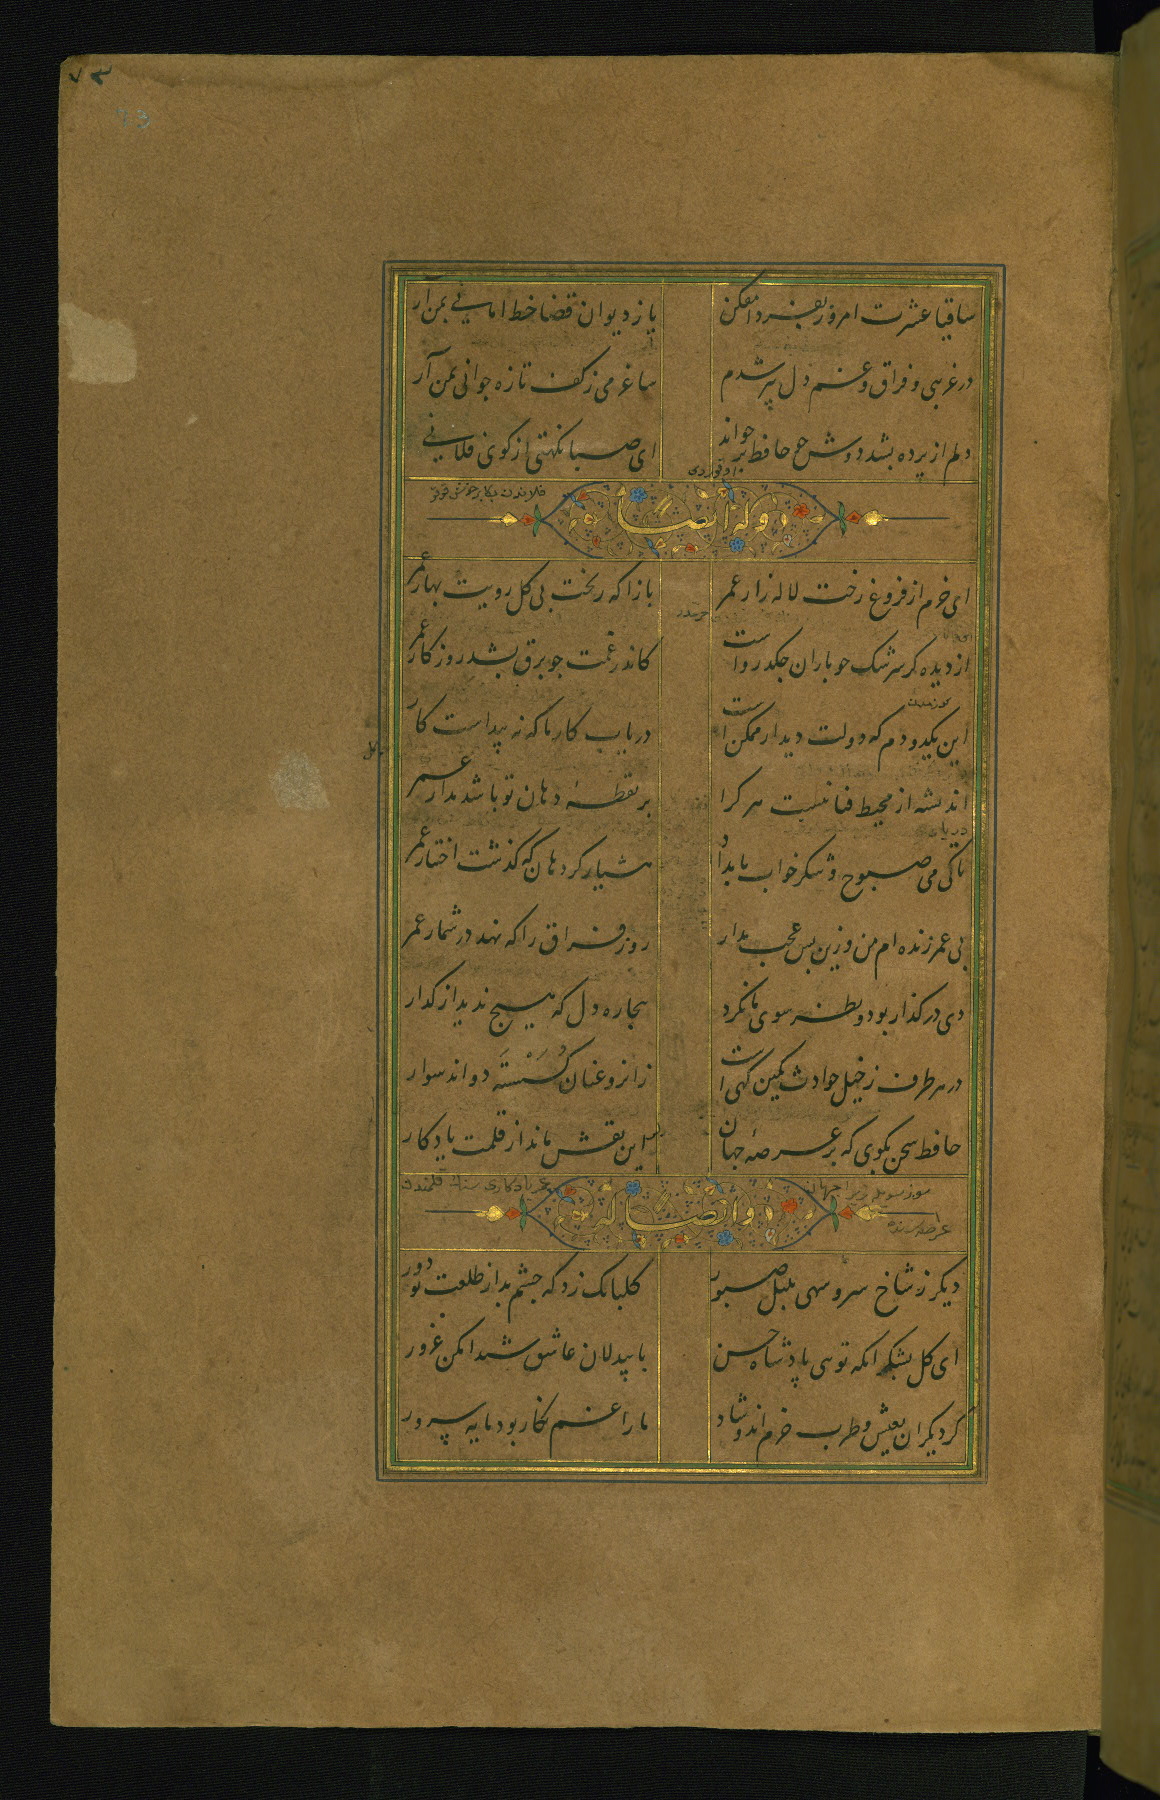 ۷۳
ساقیا عشرت امروز بفردا مفکن
یا ز دیوان قضا خط امانی بمن آر
در غریبی و فراق و غم دل پیر شدم
ساغر می ز کف تازه جوانی بمن آر
دلم از پرده بشد دوش چو حافظ بر خواند
ای صبا نکهتی از کوی فلانی
وله ایضا
ای خرم از فروغ رخت لاله زار عمر
باز آ که ریخت بی کل رویت بهار عمر
از دیده کر سرشک چو باران چکد رواست
کاندر غمت چو برق بشد روزکار عمر
این یکدو دم که دولت دیدار ممکن است
دریاب کار ما که نه پیداست کار
اندیشه از محیط فنا نیست هر کرا
بر نقطۀ دهان تو باشد مدار عمر
تا کی می صبوح و شکر خواب بامداد
هشیار کرد هان که گذشت اختیار عمر
بی عمر زنده ام من وزین بس عجب مدار
روز فراق را که نهد در شمار عمر
دی در کذار بود و نظر سوی ما نکرد
بیچاره دل که هیچ ندید از کذار
در هر طرف ز خیل حوادث کمین کهی است
زانرو عنان کسسته دواند سوار
حافظ سخن بکوی که بر عرصۀ جهان
این نقش ماند از قلمت یادکار
وله ایضا
دیکر ز شاخ سرو سهی بلبل صبور
کلبانک زد که چشم بد از طلعت تو دور
ای کل بشکر آنکه تویی پادشاه حسن
با بیدلان عاشق شیدا مکن غرور
کر دیکران بعیش و طرب خرم اند و شاد
ما را غم نکار بود مایه سرور